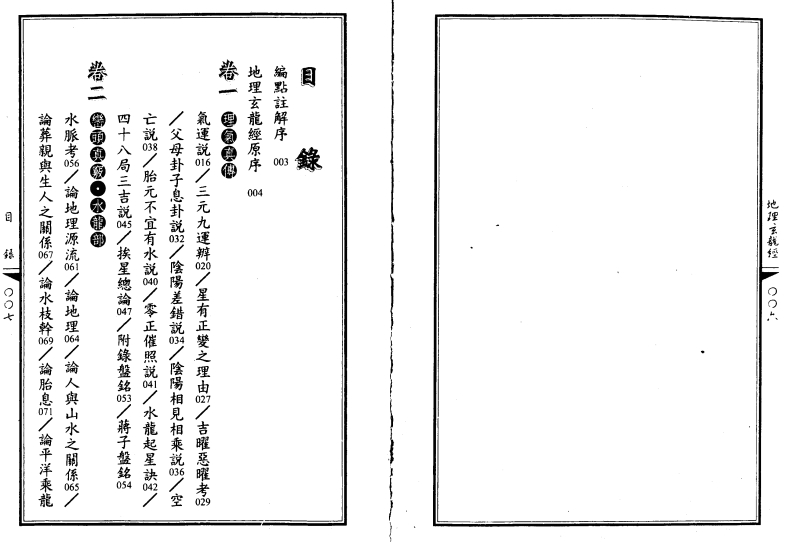 地理玄龍經
〇〇六
目錄
編點註解序 003
地理玄龍經原序 004
卷一 理氣真傳
氣運說016／三元九運辨020／星有正變之理由027／吉曜惡曜考029
／父母卦子息卦說032／陰陽差錯說034／陰陽相見相乘說036／空
亡說038／胎元不宜有水說040／零正催照說041／水龍起星訣042／
四十八局三吉說045／挨星總論047／附錄盤銘053／蔣子盤銘054
卷二 巒頭真竅・水龍部
水脈考056／論地理源流061／論地理064／論人與山水之關係065／
論葬親與生人之關係067／論水枝幹069／論胎息071／論平洋乘龍
目錄
〇〇七